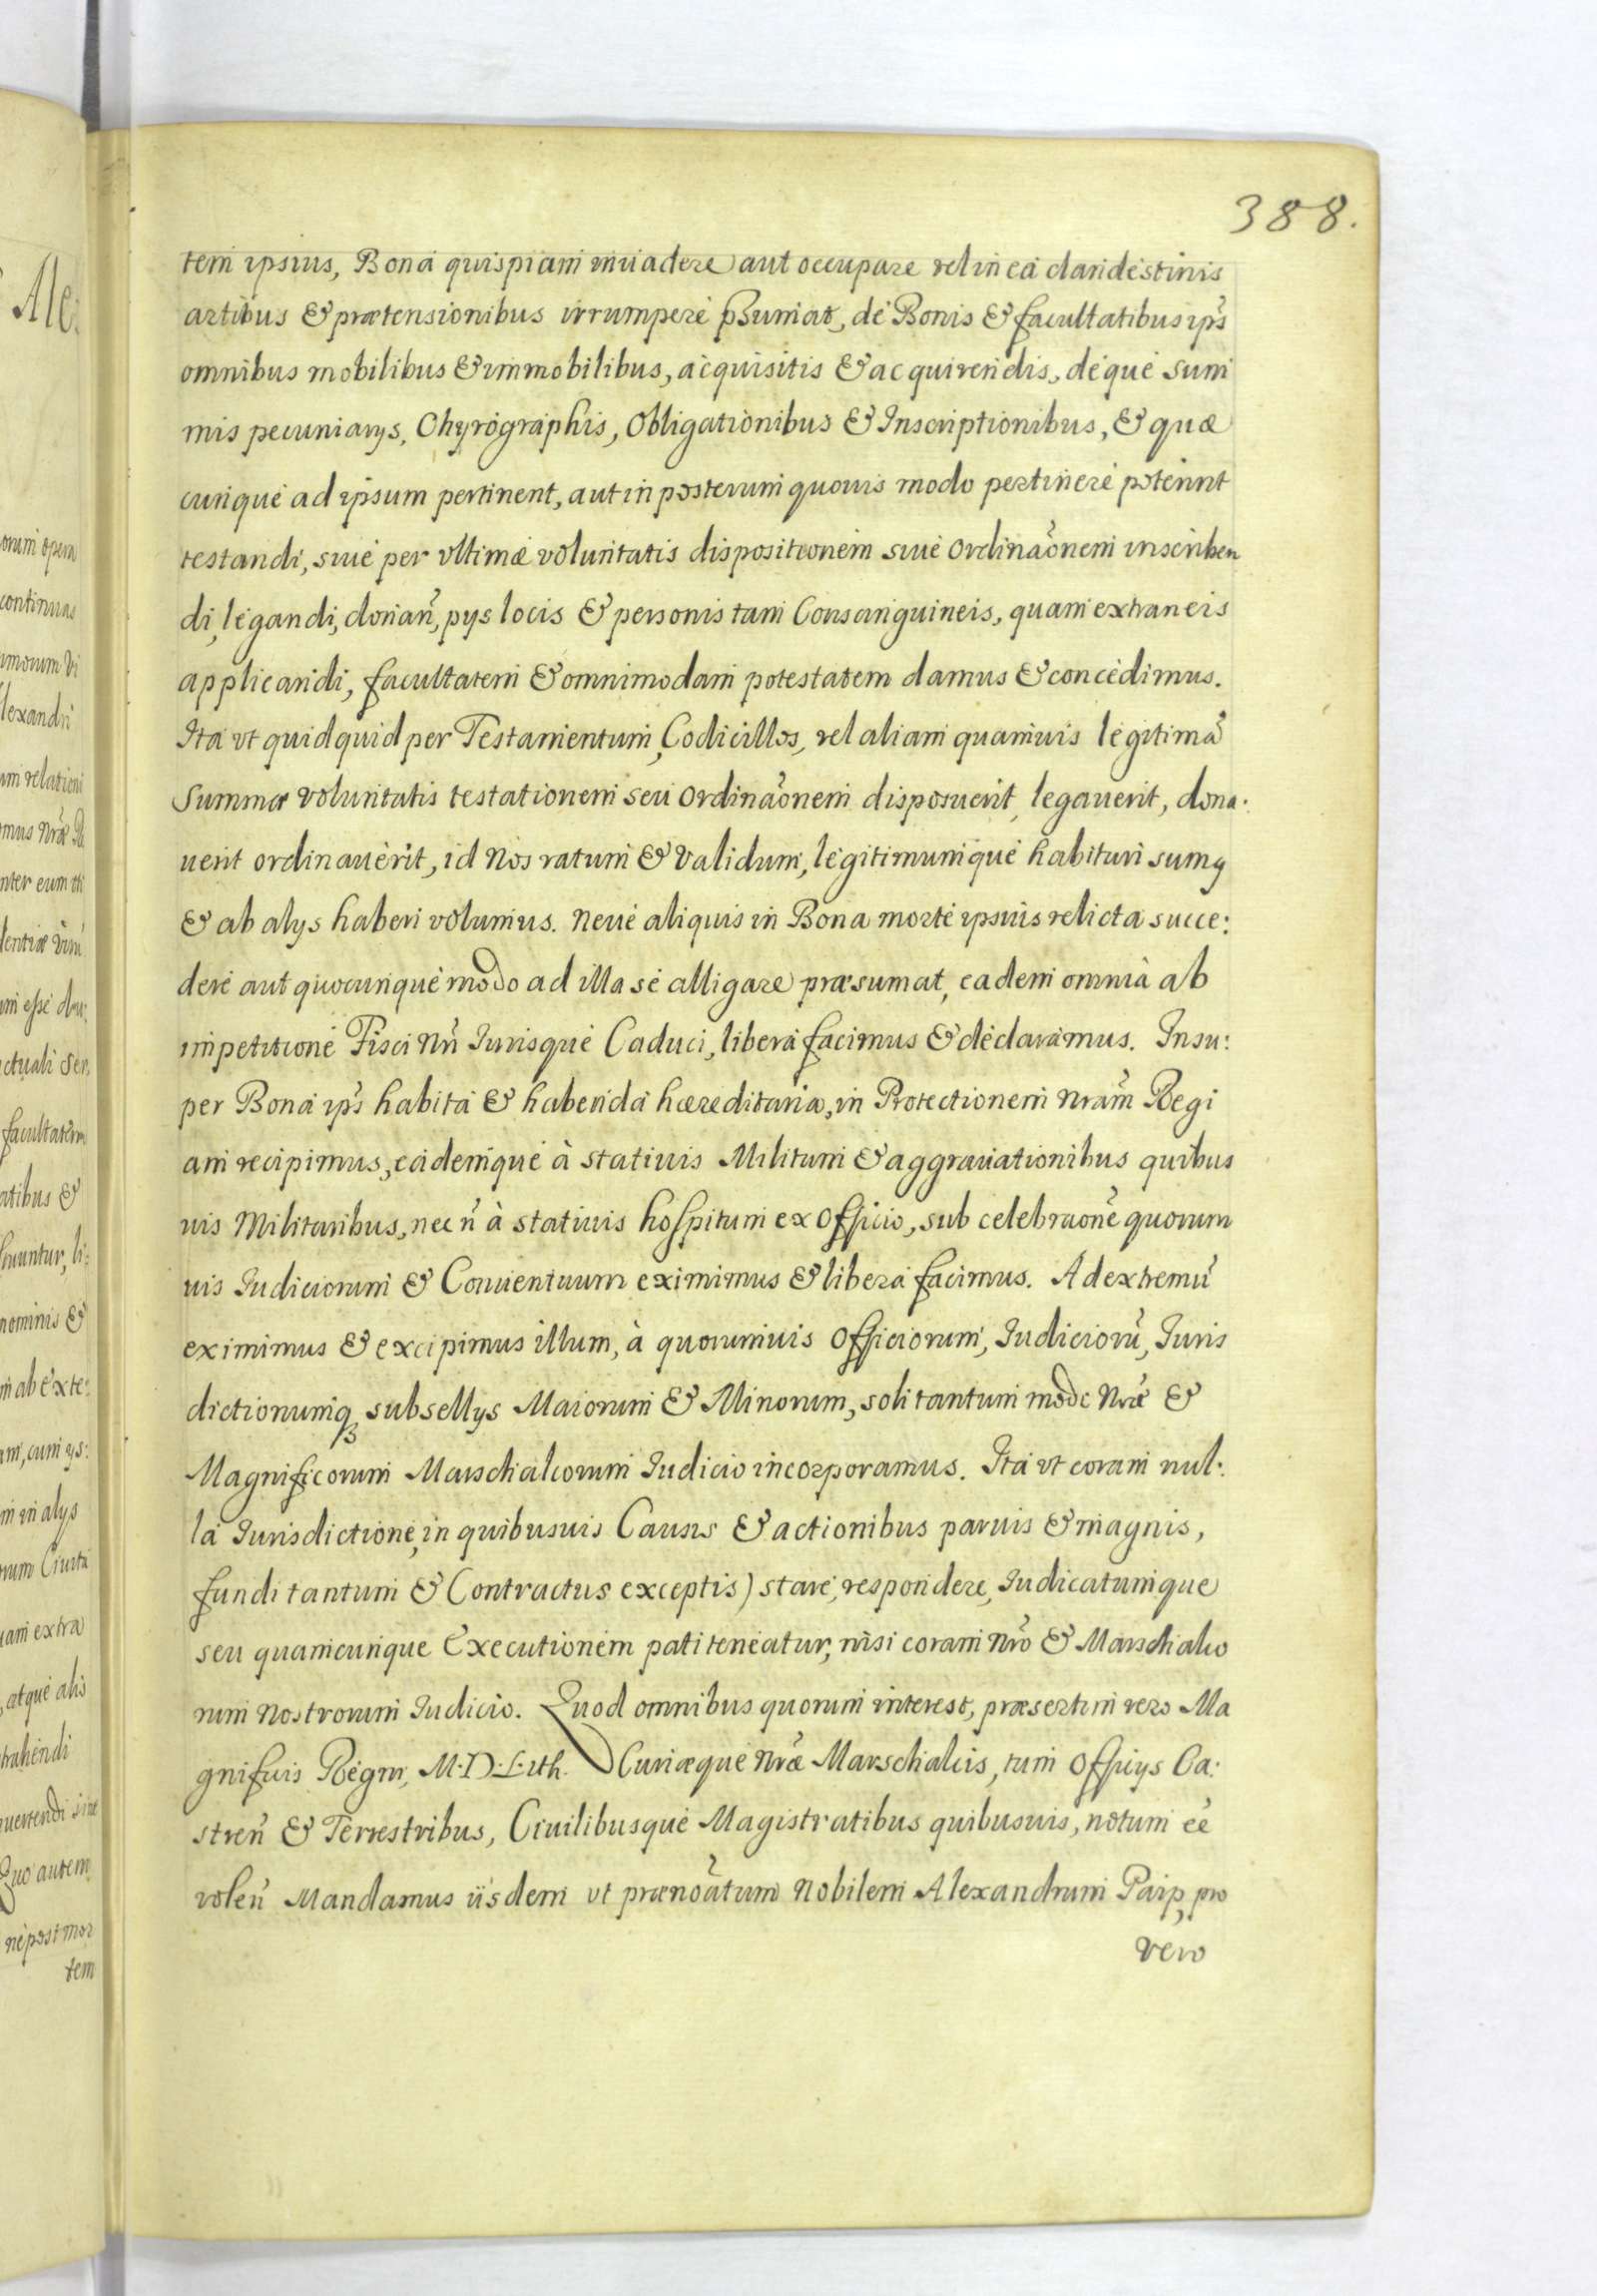 388.
tem ipsius, Bona quispiam inuadere aut occupare vel in ea clandestinis
artibus & prætensionibus irrumpere p̃sumat, de Bonis & facultatibus ip̃s
omnibus mobilibus & immobilibus, acquisitis & acquirendis, deque sum
mis pecuniarys, Chyrographis, Obligationibus & Inscriptionibus, & quæ
cunque ad ipsum pertinent, aut in posterum quouis modo pertinere poterint
testandi, siue per vltimæ voluntatis dispositionem siue Ordinãonem inscriben
di, legandi, donañ, pys locis & personis tam Consanguineis, quam extraneis
applicandi, facultatem & omnimodam potestatem damus & concedimus.
Ita vt quidquid per Testamentum, Codicillos, vel aliam quamuis legitimã
Summæ voluntatis testationem seu Ordinãonem disposuerit, legauerit, dona:
uerit ordinauerit, id Nos ratum & validum, legitimumque habituri sumꝯ
& ab alys haberi volumus. Neue aliquis in Bona morte ipsius relicta succe:
dere aut quocunque modo ad illa se alligare præsumat, eadem omnia ab
impetitione Fisci Nr̃i Iurisque Caduci, libera facimus & declaramus. Insu:
per Bona ip̃s habita & habenda hæreditaria, in Protectionem Nram̃ Regi
am recipimus, eademque à statiuis Militum & aggrauationibus quibus
uis Militaribus, nec ñ à statiuis hospitum ex Officio, sub celebraone͂ quorum
uis Iudiciorum & Conuentuum eximimus & libera facimus. Ad extremũ
eximimus & excipimus illum, à quorumuis Officiorum, Iudiciorũ, Iuris
dictionumq subsellys Maiorum & Minorum, soli tantum modo Nræ̃ &
Magnificorum Marschalcorum Iudicio incorporamus. Ita vt coram nul:
la Iurisdictione, in quibusuis Causis & actionibus paruis & magnis,
fundi tantum & Contractus exceptis) stare, respondere, Iudicatumque
seu quamcunque Executionem pati teneatur, nisi coram Nrõ & Marschalco
rum Nostrorum Iudicio. Quod omnibus quorum interest, præsertim vero Ma
gnificis Regni, M.D.Lith. Curiæque Nræ̃ Marschalcis, tum Officys Ca:
streñ & Terrestribus, Ciuilibusque Magistratibus quibusuis, notum eẽ
voleñ Mandamus iisdem vt prænoãtum Nobilem Alexandrum Paip, pro
vero